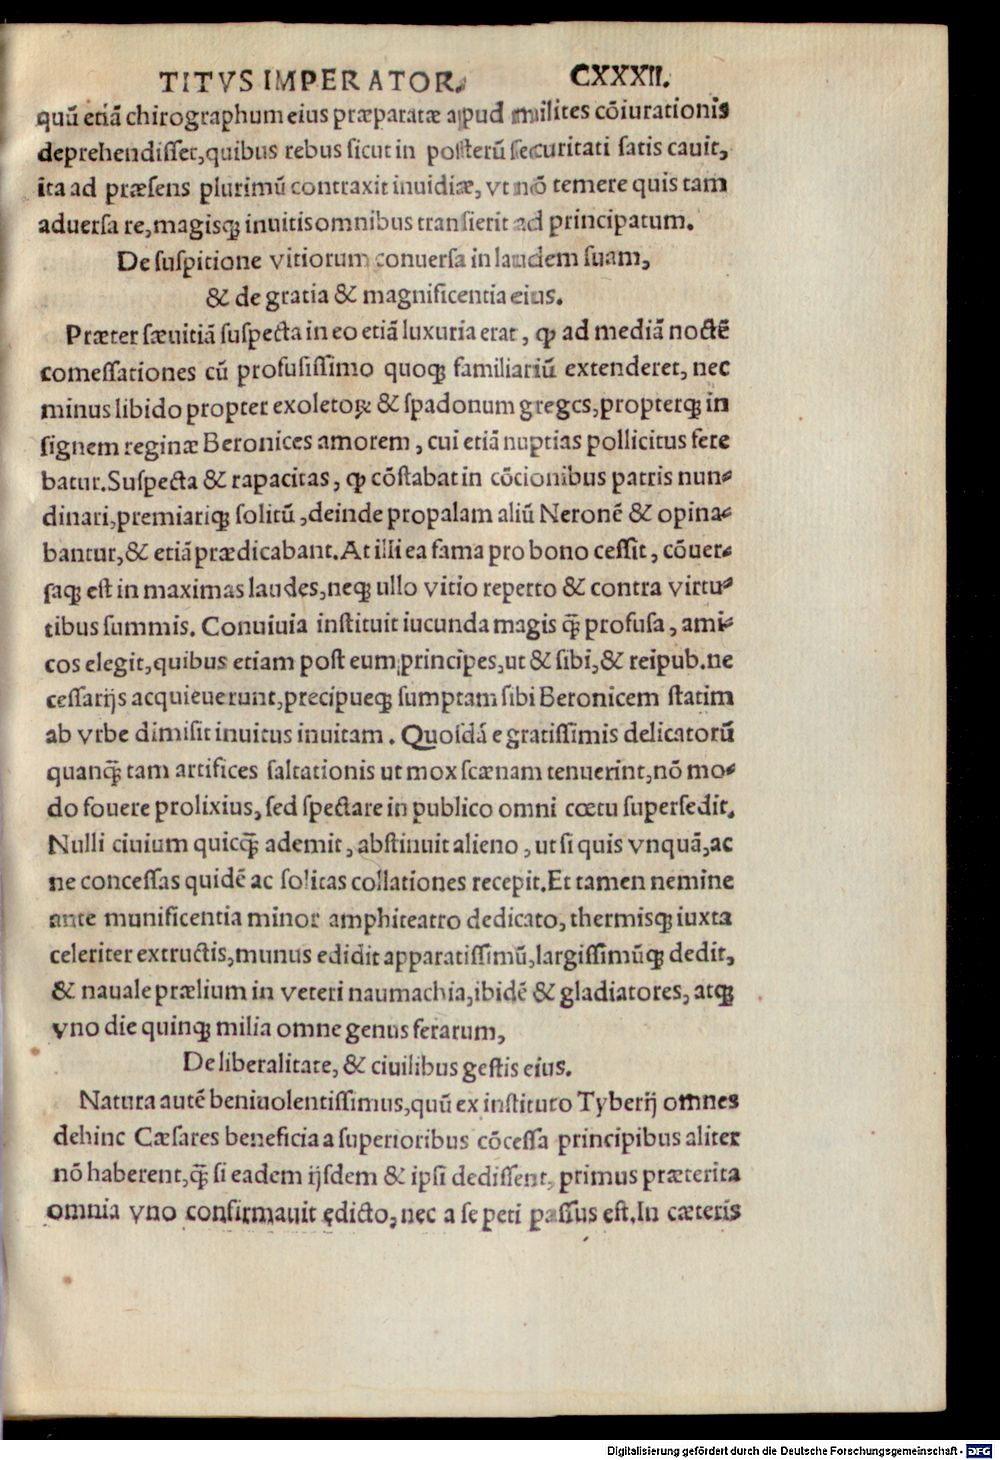 TITVS IMPERATOR. CXXXII.
quū etiā chirographum eius præparatæ apud milites cōiurationis
deprehendisset,quibus rebus sicut in posterū securitati satis cauit,
ita ad præsens plurimū contraxit inuidiæ, vt nō temere quis tam
aduersa re,magisqꝫ inuitis omnibus transierit ad principatum.
De suspitione vitiorum conuersa in laudem suam,
& de gratia & magnificentia eius.
Præter sæuitiā suspecta in eo etiā luxuria erat, ꝙ ad mediā noctē
comessationes cū profusissimo quoqꝫ familiariū extenderet, nec
minus libido propter exoletoꝝ & spadonum greges,propterqꝫ in
signem reginæ Beronices amorem, cui etiā nuptias pollicitus fere
batur.Suspecta & rapacitas, ꝙ cōstabat in cōcionibus patris nun-
dinari,premiariqꝫ solitū,deinde propalam aliū Neronē & opina-
bantur,& etiā prædicabant.At illi ea fama pro bono cessit, cōuer-
saqꝫ est in maximas laudes,neqꝫ ullo vitio reperto & contra virtu-
tibus summis. Conuiuia instituit iucunda magis q̄ꝫ profusa, ami-
cos elegit,quibus etiam post eum principes,ut & sibi,& reipub.ne
cessarijs acquieuerunt,precipueqꝫ sumptam sibi Beronicem statim
ab vrbe dimisit inuitus inuitam. Quosdā e gratissimis delicatorū
quanq̄ꝫ tam artifices saltationis ut mox scænam tenuerint,nō mo-
do fouere prolixius, sed spectare in publico omni cœtu supersedit.
Nulli ciuium quicq̄ꝫ ademit, abstinuit alieno, ut si quis vnquā,ac
ne concessas quidē ac solitas collationes recepit.Et tamen nemine
ante munificentia minor amphiteatro dedicato, thermisqꝫ iuxta
celeriter extructis,munus edidit apparatissimū,largissimūqꝫ dedit,
& nauale prælium in veteri naumachia,ibidē & gladiatores, atqꝫ
vno die quinqꝫ milia omne genus ferarum,
De liberalitate, & ciuilibus gestis eius.
Natura autē beniuolentissimus,quū ex instituto Tyberij omnes
dehinc Cæsares beneficia a superioribus cōcessa principibus aliter
nō haberent,q̄ꝫ si eadem ijsdem & ipsi dedissent, primus præterita
omnia vno confirmauit ędicto, nec a se peti passus est.In cæteris
Digitalisierung gefördert durch die Deutsche Forschungsgemeinschaft - DFG